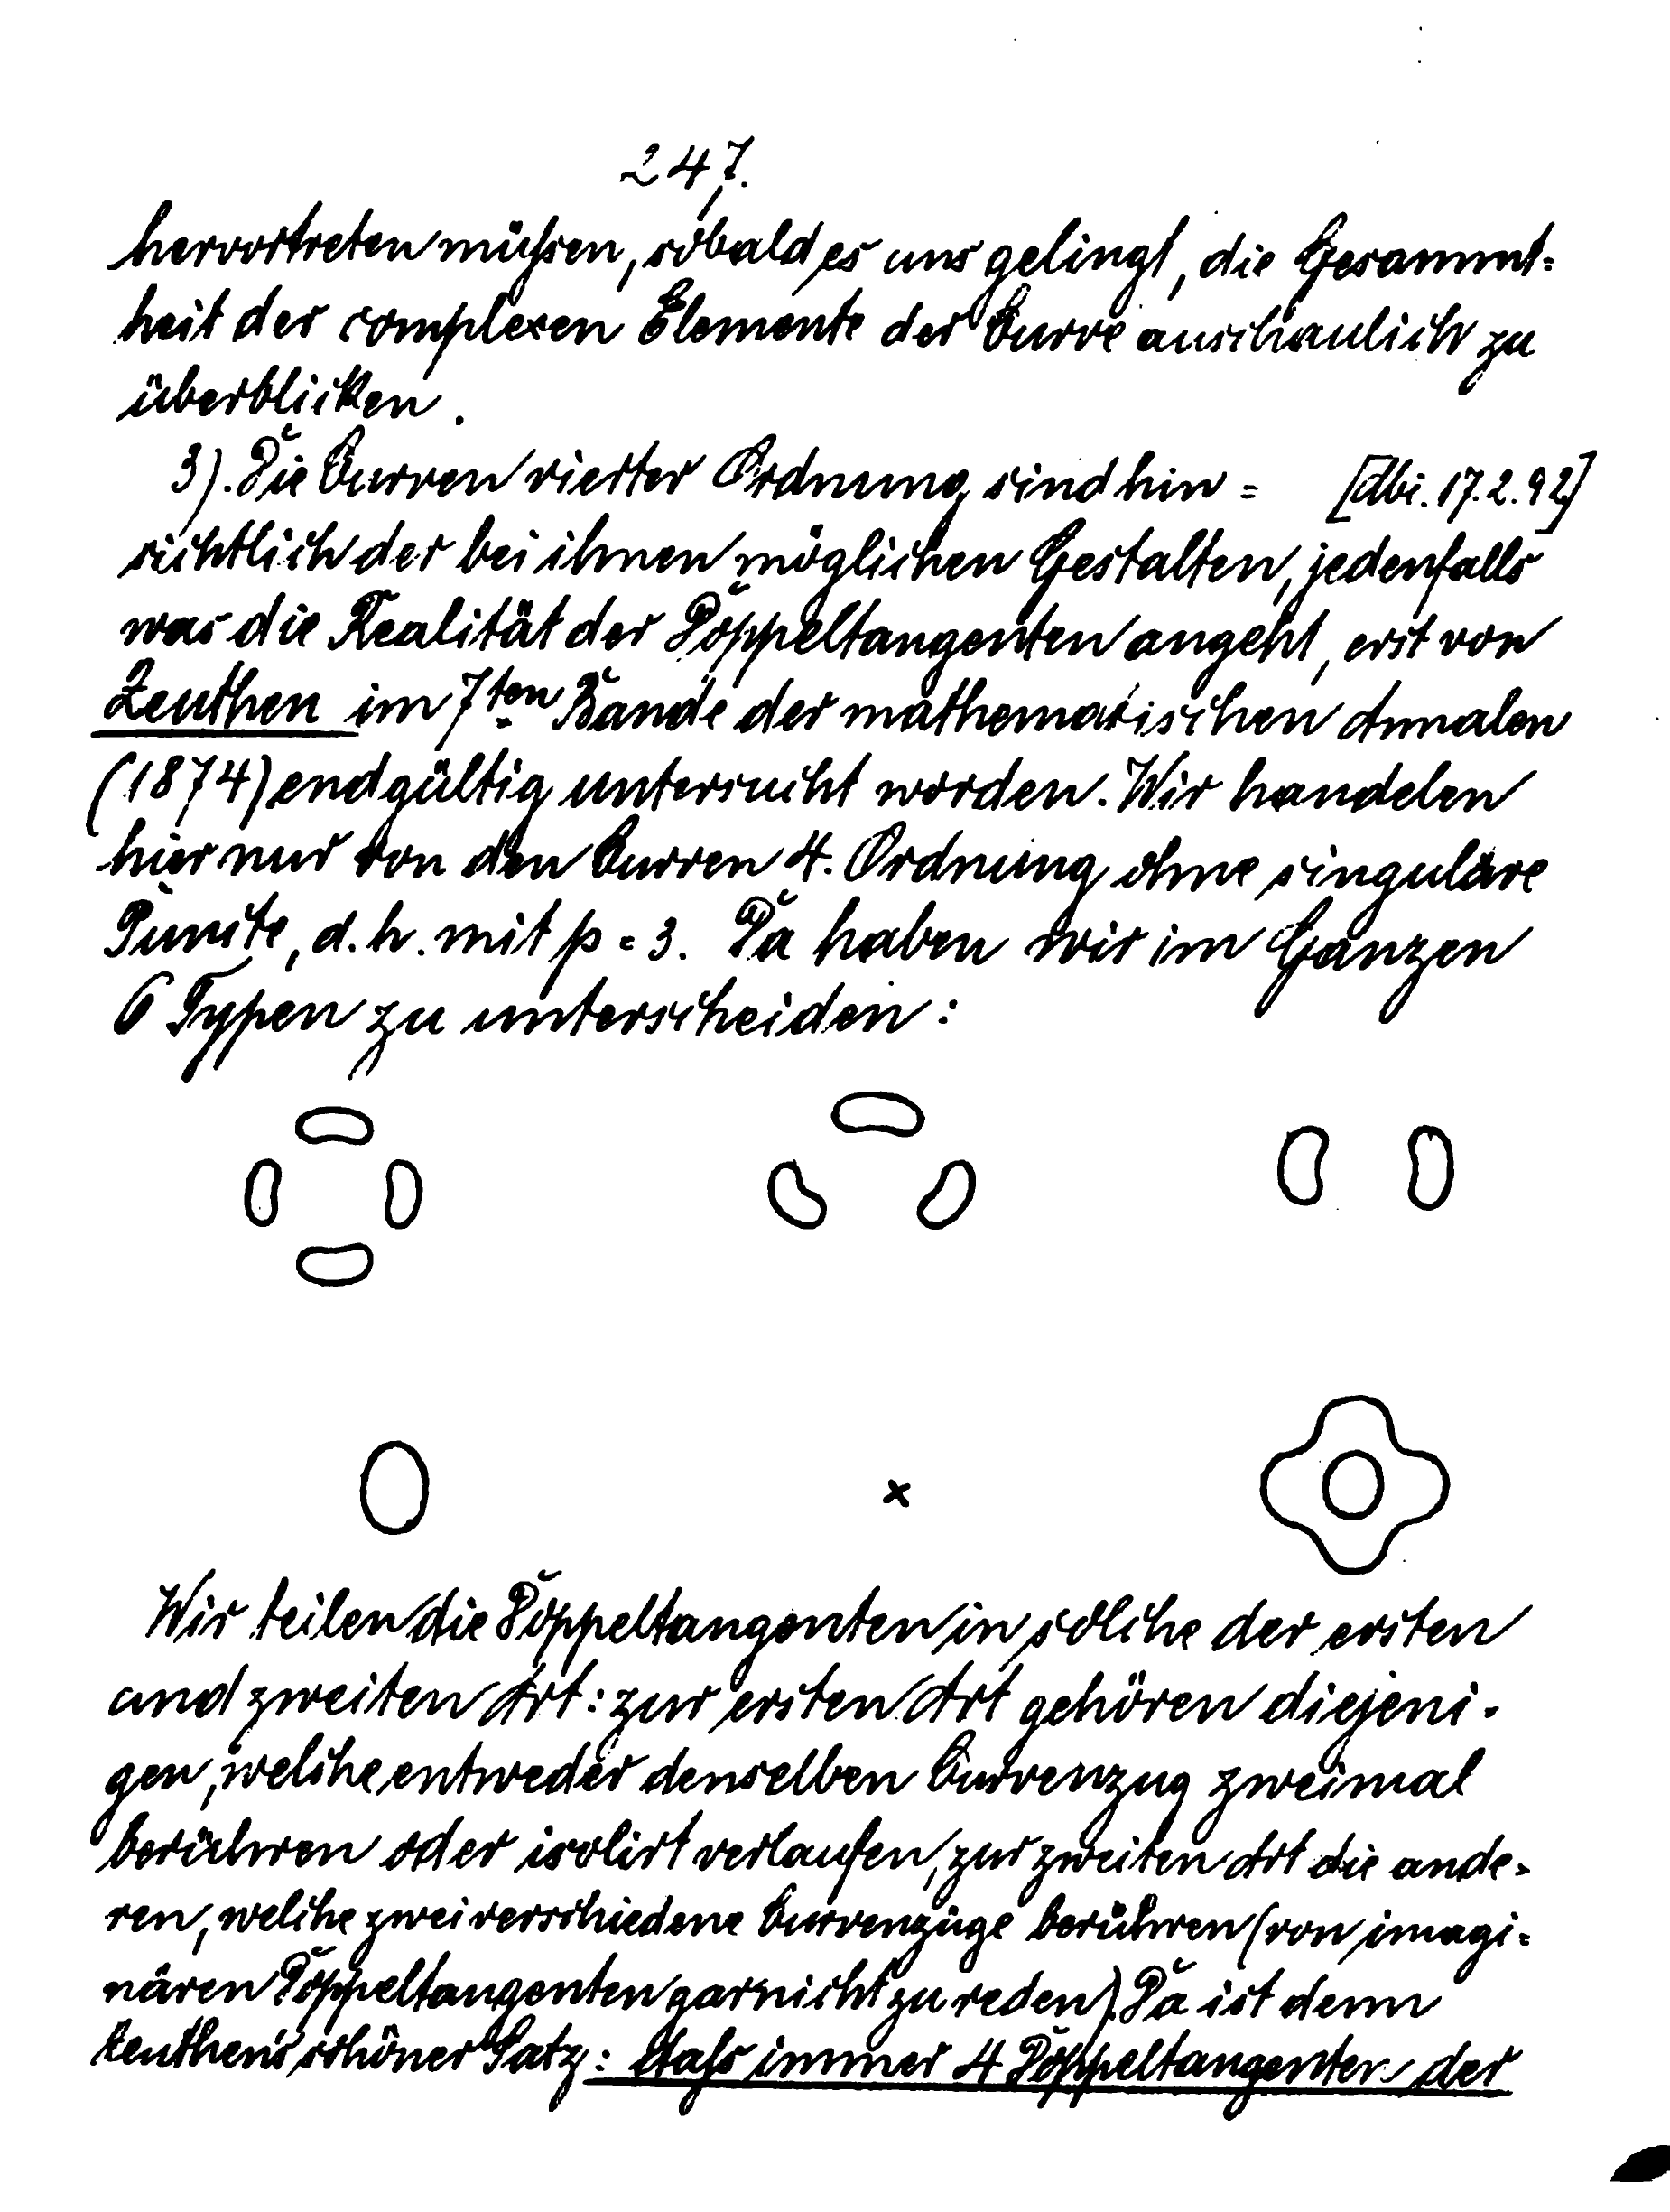 247.
hervortreten müssen, sobald es uns gelingt, die Gesammt-
heit der complexen Elemente der Curve anschaulich zu
überblicken.
3). Die Curven vierter Ordnung sind hin- [Di. 17.2.92]
sichtlich der bei ihnen möglichen Gestalten, jedenfalls
was die Realität der Doppeltangenten angeht, erst von
Zeuthen im 7ten Bande der mathematischen Annalen
(1874) endgültig untersucht worden. Wir handelen
hier nur von den Curven 4. Ordnung ohne singuläre
Puncte, d.h. mit p = 3. Da haben wir im Ganzen
6 Typen zu unterscheiden:
x
Wir teilen die Doppeltangenten in solche der ersten
und zweiten Art: zur ersten Art gehören diejeni-
gen, welche entweder denselben Curvenzug zweimal
berühren oder isolirt verlaufen, zur zweiten Art die ande-
ren, welche zwei verschiedene Curvenzüge berühren (von imagi-
nären Doppeltangenten garnicht zu reden). Da ist denn
Zeuthen's schöner Satz: dass immer 4 Doppeltangenten der